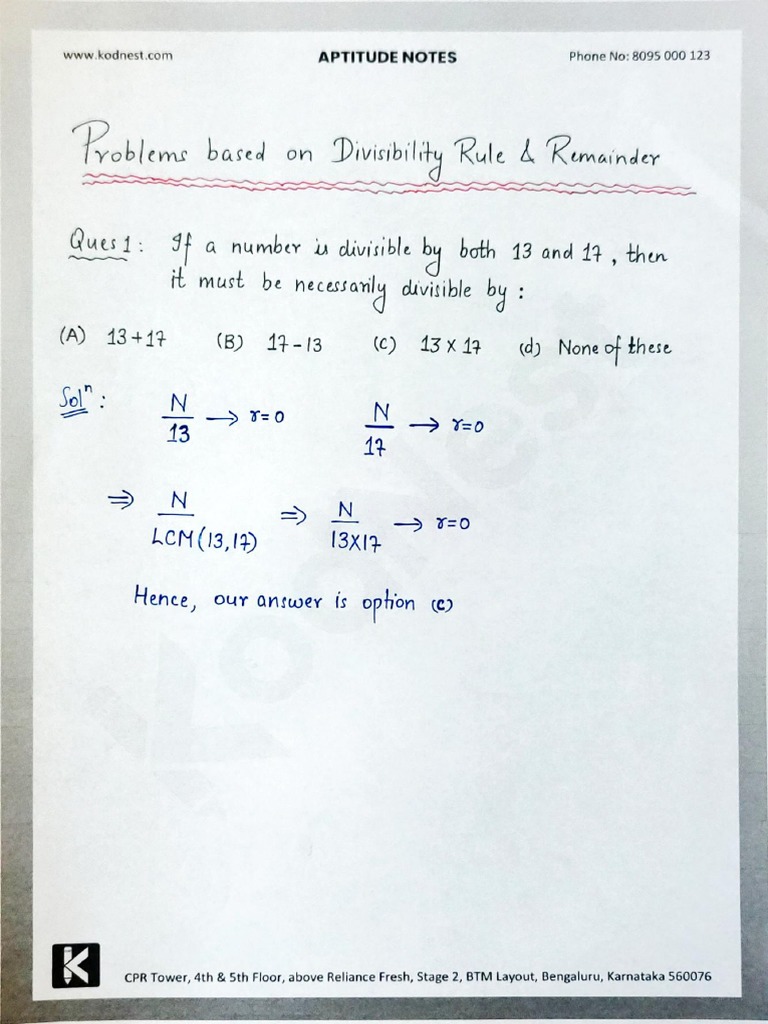 www.kodnest.com APTITUDE NOTES Phone No: 8095 000 123
Problems based on Divisibility Rule & Remainder
Ques 1: If a number is divisible by both 13 and 17, then
it must be necessarily divisible by :
(A) 13+17 (B) 17-13 (c) 13 x 17 (d) None of these
Solⁿ: N/13 → r=0 N/17 → r=0
⇒ N/LCM(13,17) ⇒ N/13X17 → r=0
Hence, our answer is option (c)
KodNest
K
CPR Tower, 4th & 5th Floor, above Reliance Fresh, Stage 2, BTM Layout, Bengaluru, Karnataka 560076